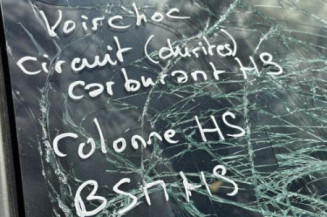 Voir choc
Circuit (durires)
carburant HS
Colonne HS
BSM HS